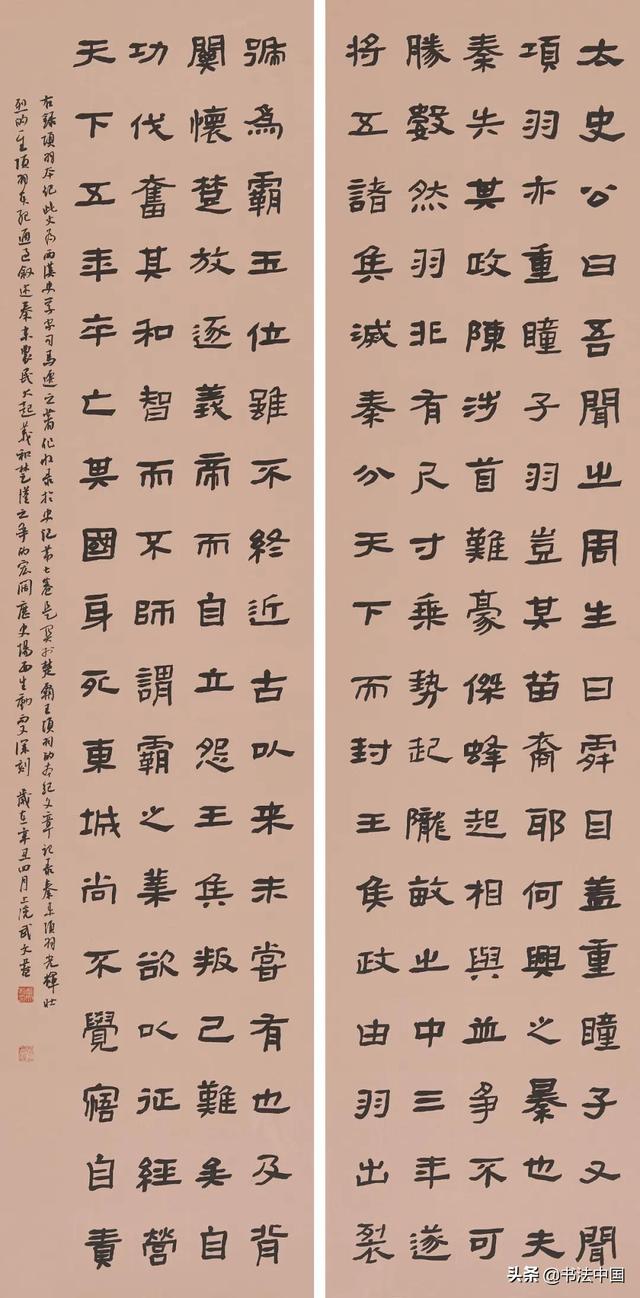 太史公曰吾聞之周生曰舜目蓋重瞳子又聞
項羽亦重瞳子羽豈其苗裔耶何興之暴也夫
秦失其政陳涉首難豪傑蜂起相與並爭不可
勝數然羽非有尺寸乘勢起隴畝之中三年遂
将五諸侯滅秦分天下而封王侯政由羽出裂
號為霸五位雖不終近古以来未嘗有也及背
關懷楚放逐義帝而自立怨王侯叛己難矣自
功伐奮其和智而不師謂霸之業欲以征經營
天下五年卒亡其國身死東城尚不覺寤自責
右錄項羽本紀此文為西漢史學家司馬遷之著作收录於史記第七卷是關於楚霸王項羽的本紀文章記录秦末項羽光輝壯
烈的一生項羽本紀通過叙述秦末農民大起義和楚漢之争的宏闊歷史場面生動而又深刻 歲在辛丑四月上浣武文
头条 @书法中国